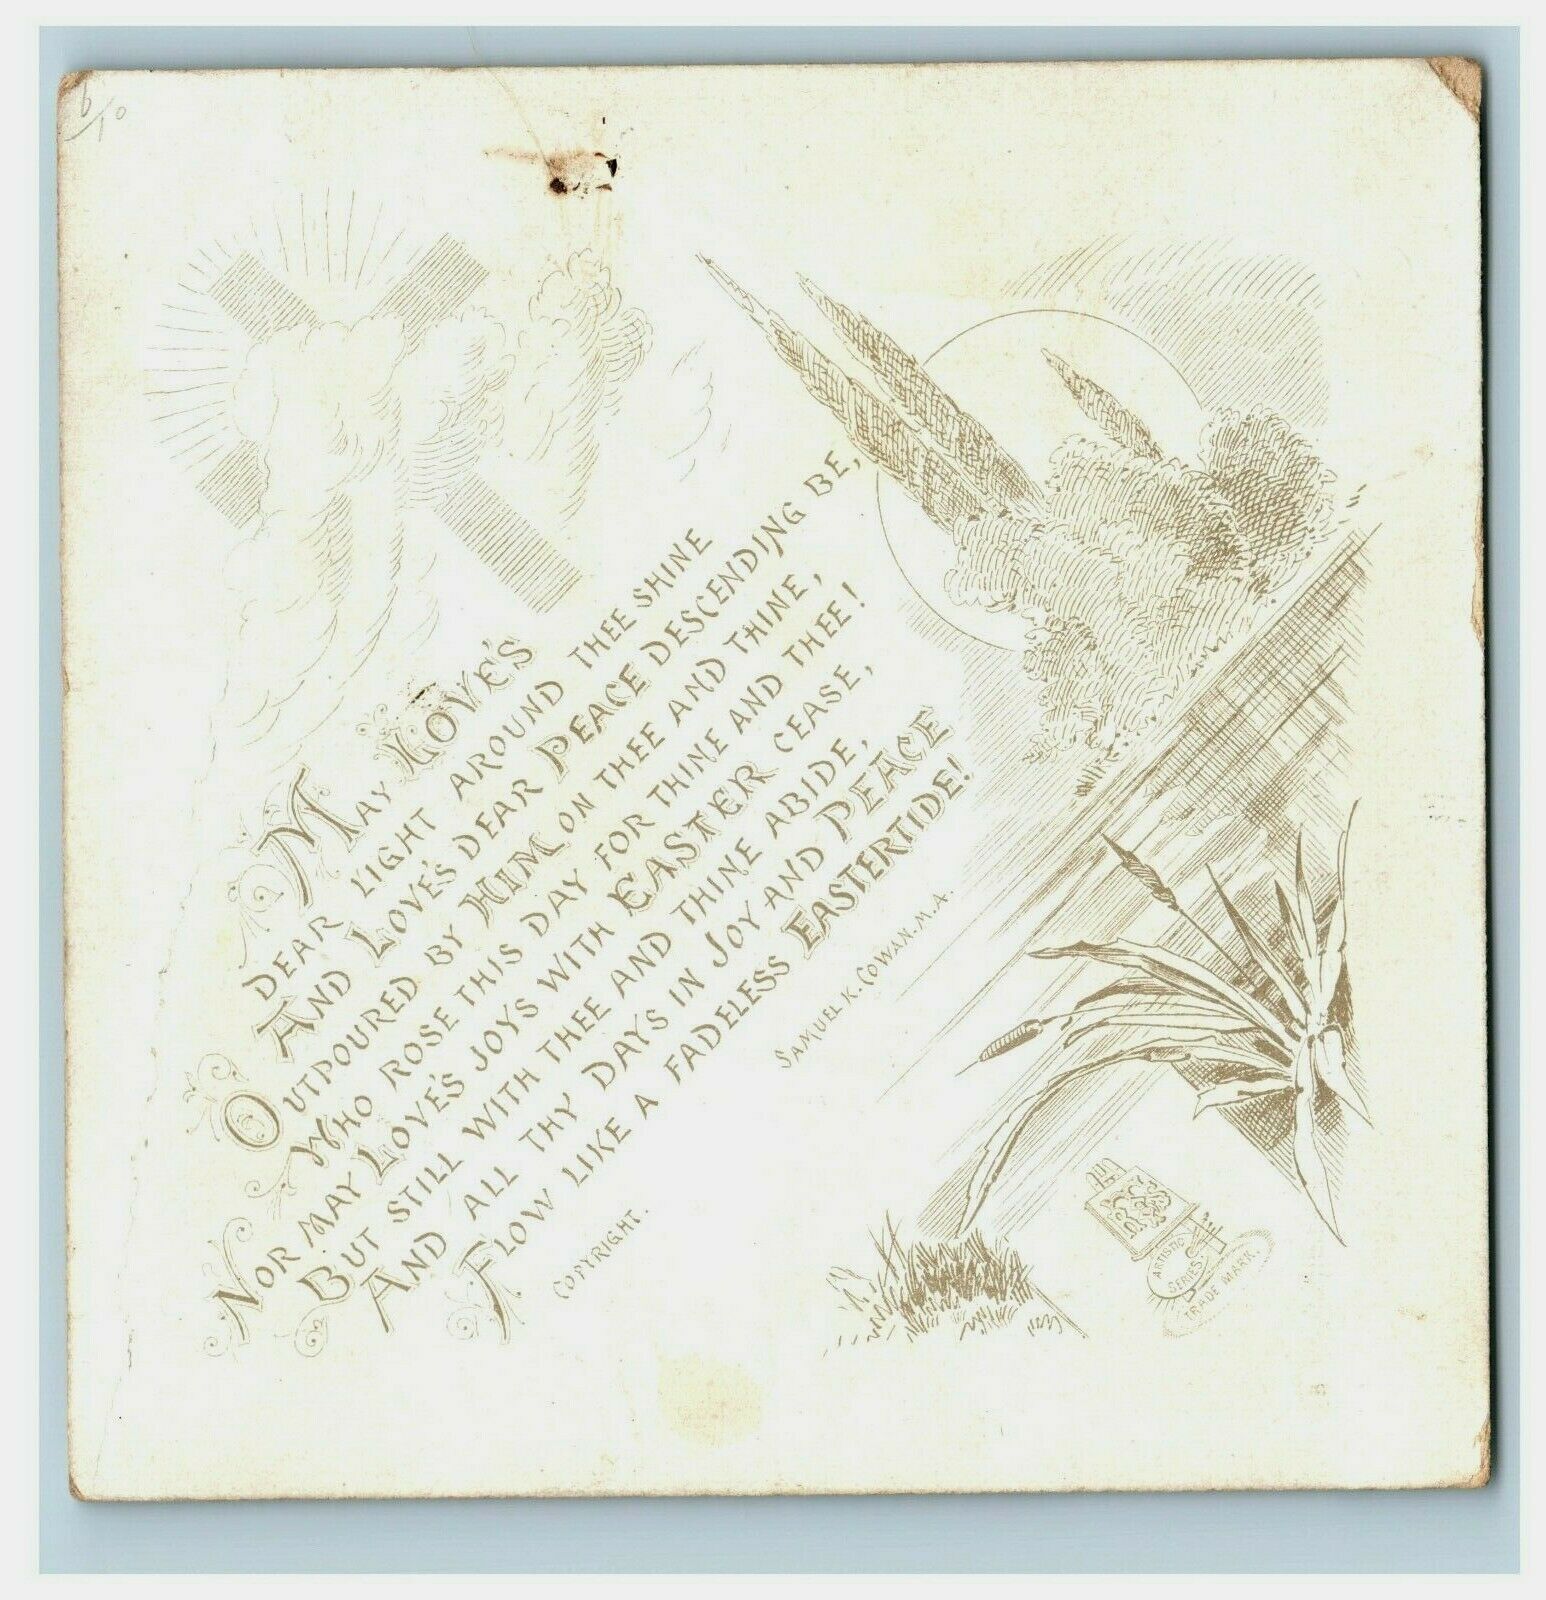 6/10
MAY LOVE'S
DEAR LIGHT AROUND THEE SHINE
AND LOVE'S DEAR PEACE DESCENDING BE,
OUTPOURED BY HIM ON THEE AND THINE,
WHO ROSE THIS DAY FOR THINE AND THEE!
NOR MAY LOVE'S JOYS WITH EASTER CEASE,
BUT STILL WITH THEE AND THINE ABIDE,
AND ALL THY DAYS IN JOY AND PEACE
FLOW LIKE A FADELESS EASTERTIDE!
SAMUEL K. COWAN. M.A.
COPYRIGHT.
ARTISTIC
SERIES
TRADE MARK.